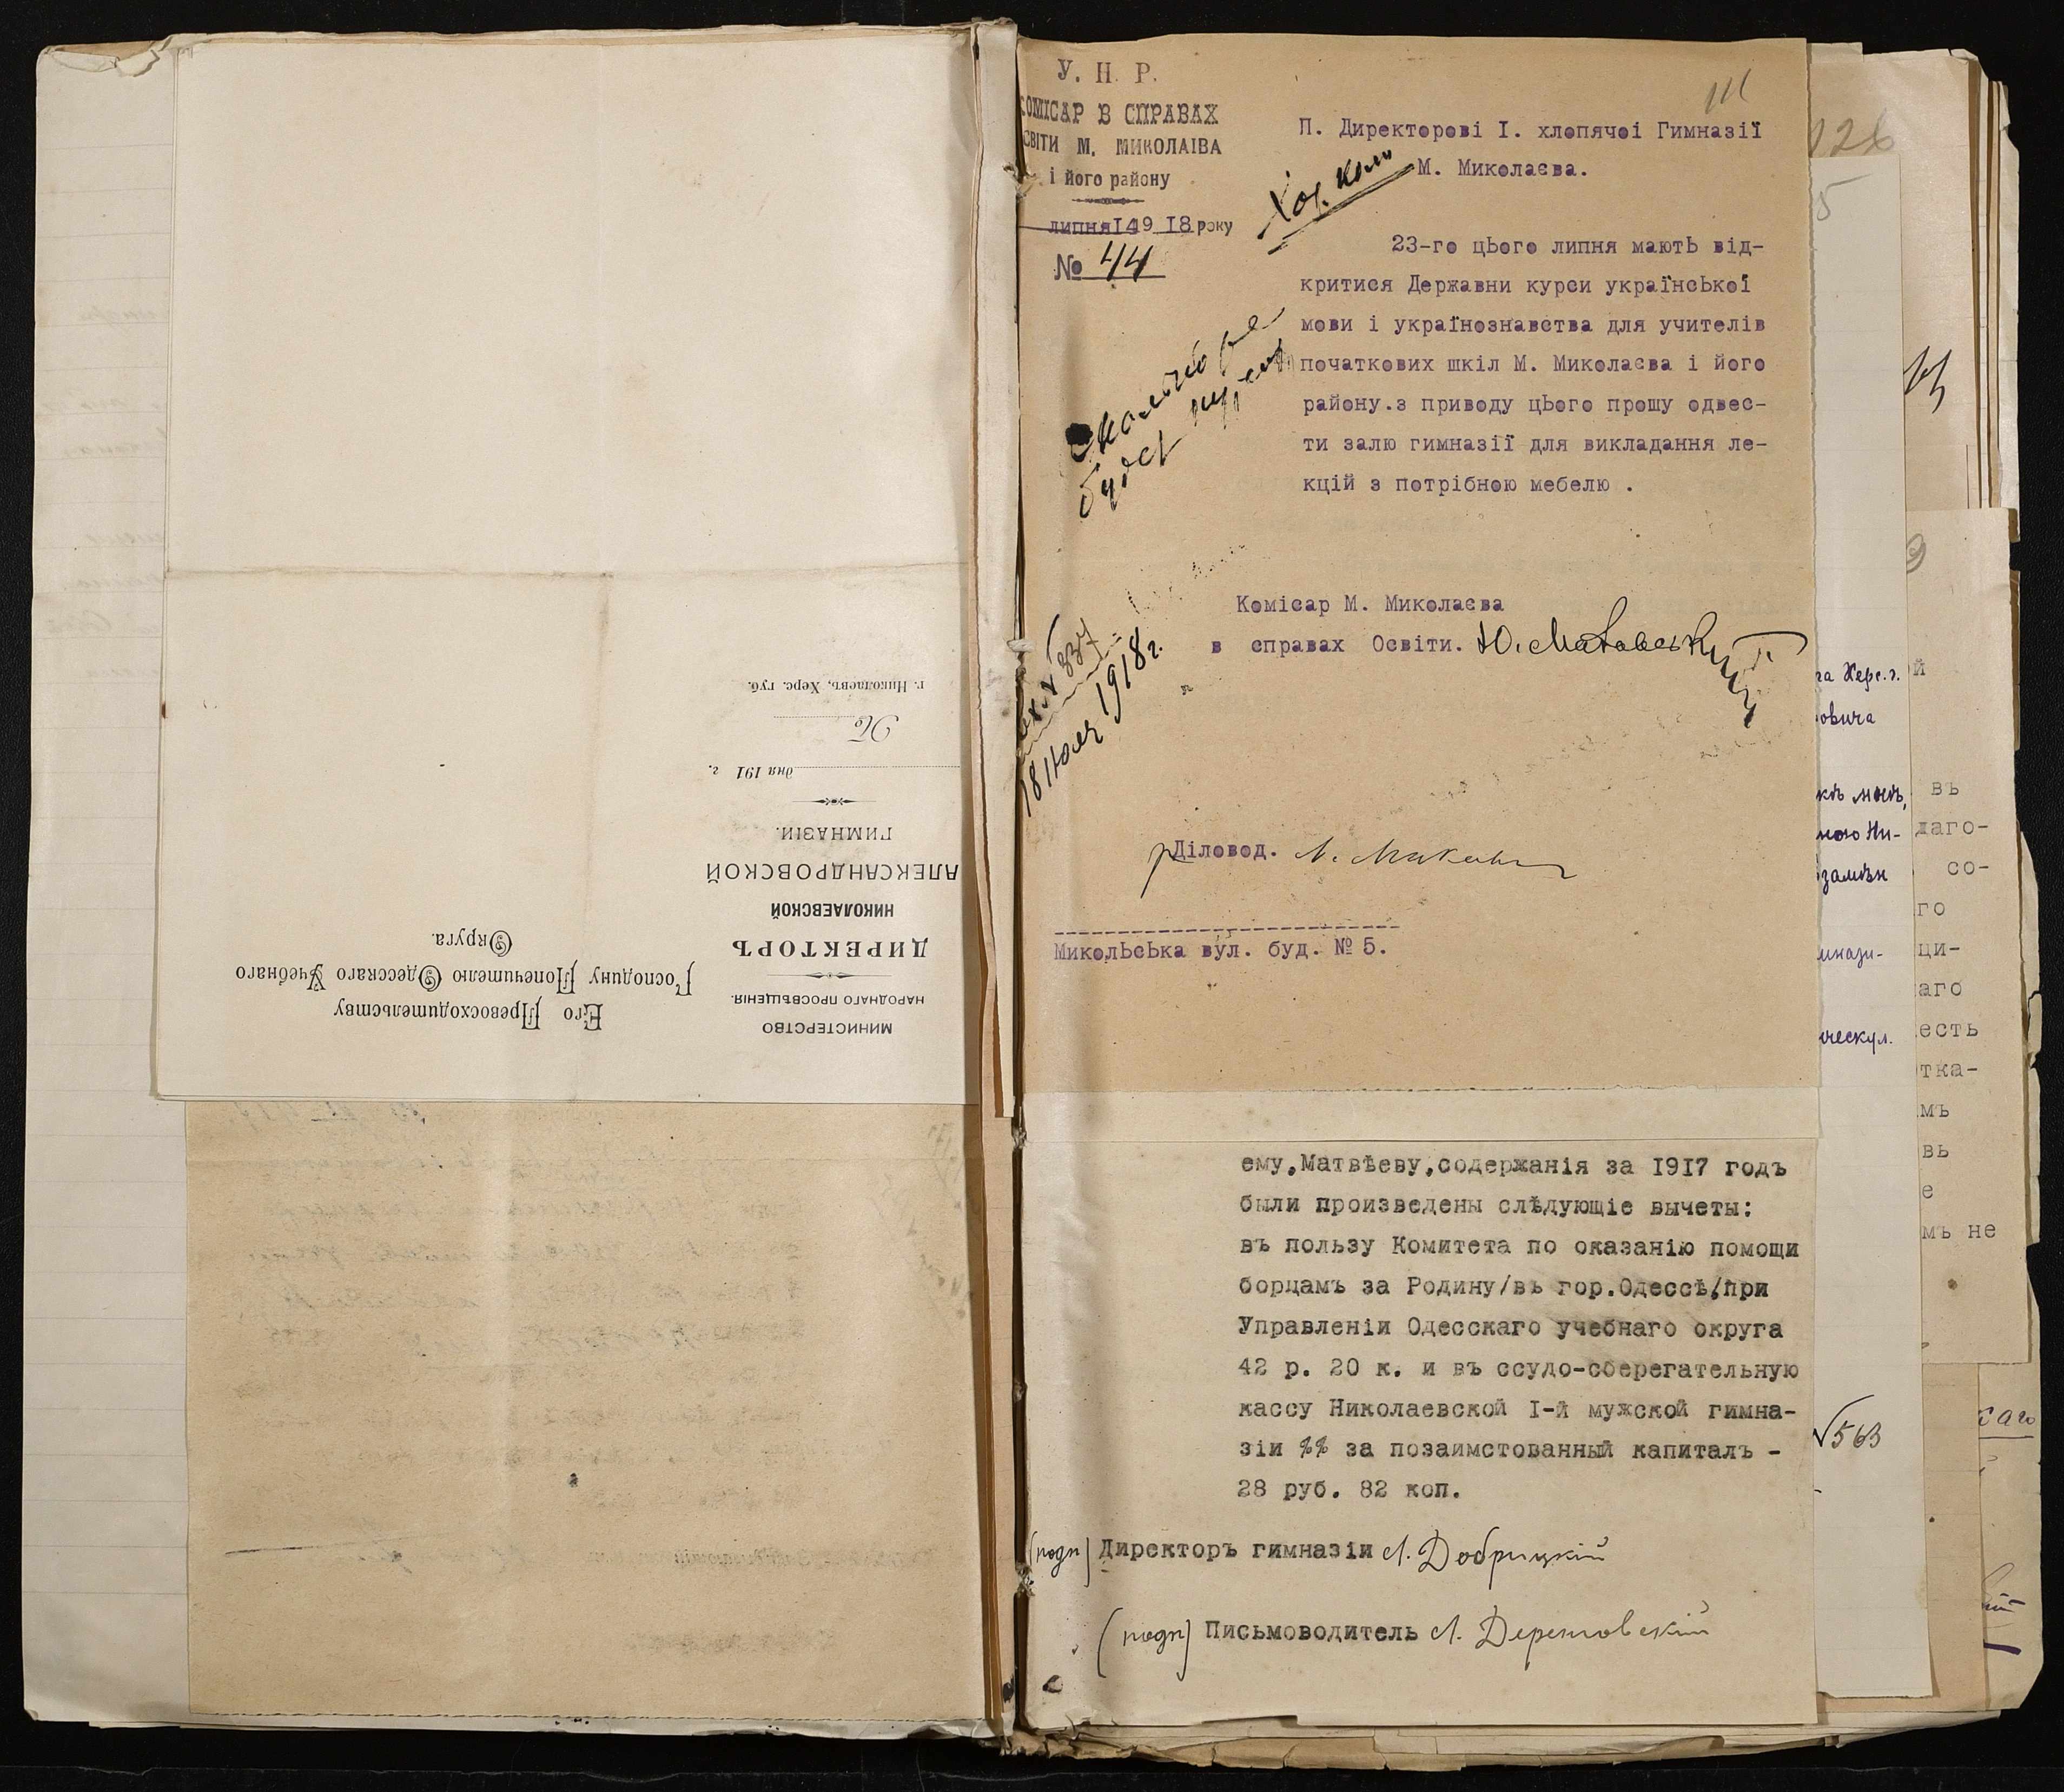 МИНИСТЕРСТВО
НАРОДНАГО ПРОСВѢЩЕНІЯ.
ДИРЕКТОРЪ
НИКОЛАЕВСКОЙ
АЛЕКСАНДРОВСКОЙ
ГИМНАЗІИ.
дня 191 г.
№
г. Николаевъ, Херс. губ.
Его Превосходительству
Господину Попечителю Одесскаго Учебнаго
Округа.
У. Н. Р.
КОМІСАР В СПРАВАХ
ОСВІТИ М. МИКОЛАІВА
і його району
липня 14 19 18 року
№ 44
111
П. Директорові I. хлопячоі Гимназії
М. Миколаєва.
23-го цЬого липня маютЬ від-
критися Державни курси українсЬкої
мови і українознавства для учителів
початкових шкіл М. Миколаєва і його
району.з приводу цЬого прошу одвес-
ти залю гимназії для викладання ле-
кцій з потрібною мебелю .
Комісар М. Миколаєва
в справах Освіти.
вх. № 337
18 Июля 1918 г.
Діловод.
МиколЬсЬка вул. буд. № 5.
ему,Матвѣеву,содержанія за 1917 годъ
были произведены слѣдующіе вычеты:
въ пользу Комитета по оказанію помощи
борцамъ за Родину/въ гор.Одессѣ/при
Управленіи Одесскаго учебнаго округа
42 р. 20 к. и въ ссудо-сберегательную
кассу Николаевской I-й мужской гимна-
зіи %% за позаимстованный капиталъ -
28 руб. 82 коп.
(подп) Директоръ гимназіи А. Добрицкій
(подп) Письмоводитель
126
5
га Херс. г.
овича
замѣн
ческул.
√563
й
въ
даго-
со-
го
ци-
аго
есть
тка-
мъ
вь
е
мъ не